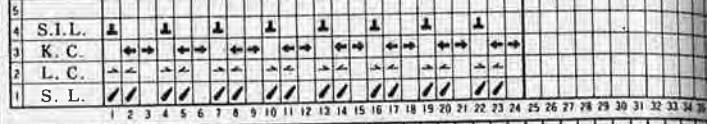 5
4 S.I.L.
3 K. C.
2 L. C.
1 S. L.
1 2 3 4 5 6 7 8 9 10 11 12 13 14 15 16 17 18 19 20 21 22 23 24 25 26 27 28 29 30 31 32 33 34 35